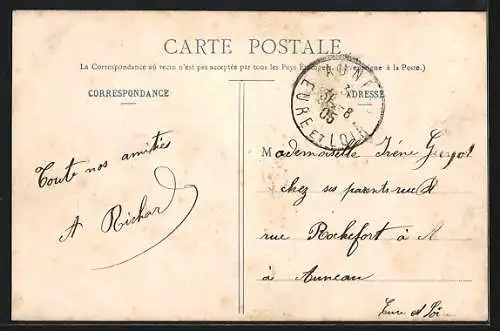 CARTE POSTALE
La Correspondance au verso n'est pas acceptée par tous les Pays Étrangers. (à la Poste.)
CORRESPONDANCE
ADRESSE
AUN
31
8
05
EURE ET LOIR
Toute nos amitiés
A Richard
Mademoiselle Irène
chez ses parents rue
rue Rochefort à A
à Auneau
Eure et Loi